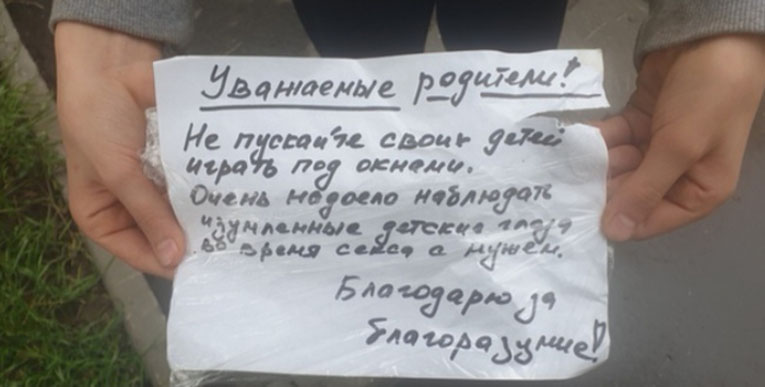 Уважаемые родители!
Не пускайте своих детей
играть под окнами.
Очень надоело наблюдать
изумленные детские глаза
во время секса с мужем.
Благодарю за
благоразумие!